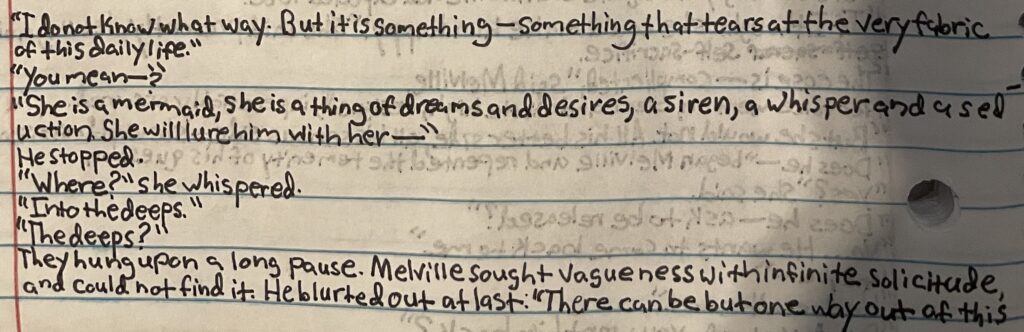 "I do not know what way. But it is something—something that tears at the very fabric
of this daily life."
"You mean—?"
"She is a mermaid, she is a thing of dreams and desires, a siren, a whisper and a sed-
uction. She will lure him with her—"
He stopped.
"Where?" she whispered.
"Into the deeps."
"The deeps?"
They hung upon a long pause. Melville sought vagueness with infinite solicitude,
and could not find it. He blurted out at last: "There can be but one way out of this